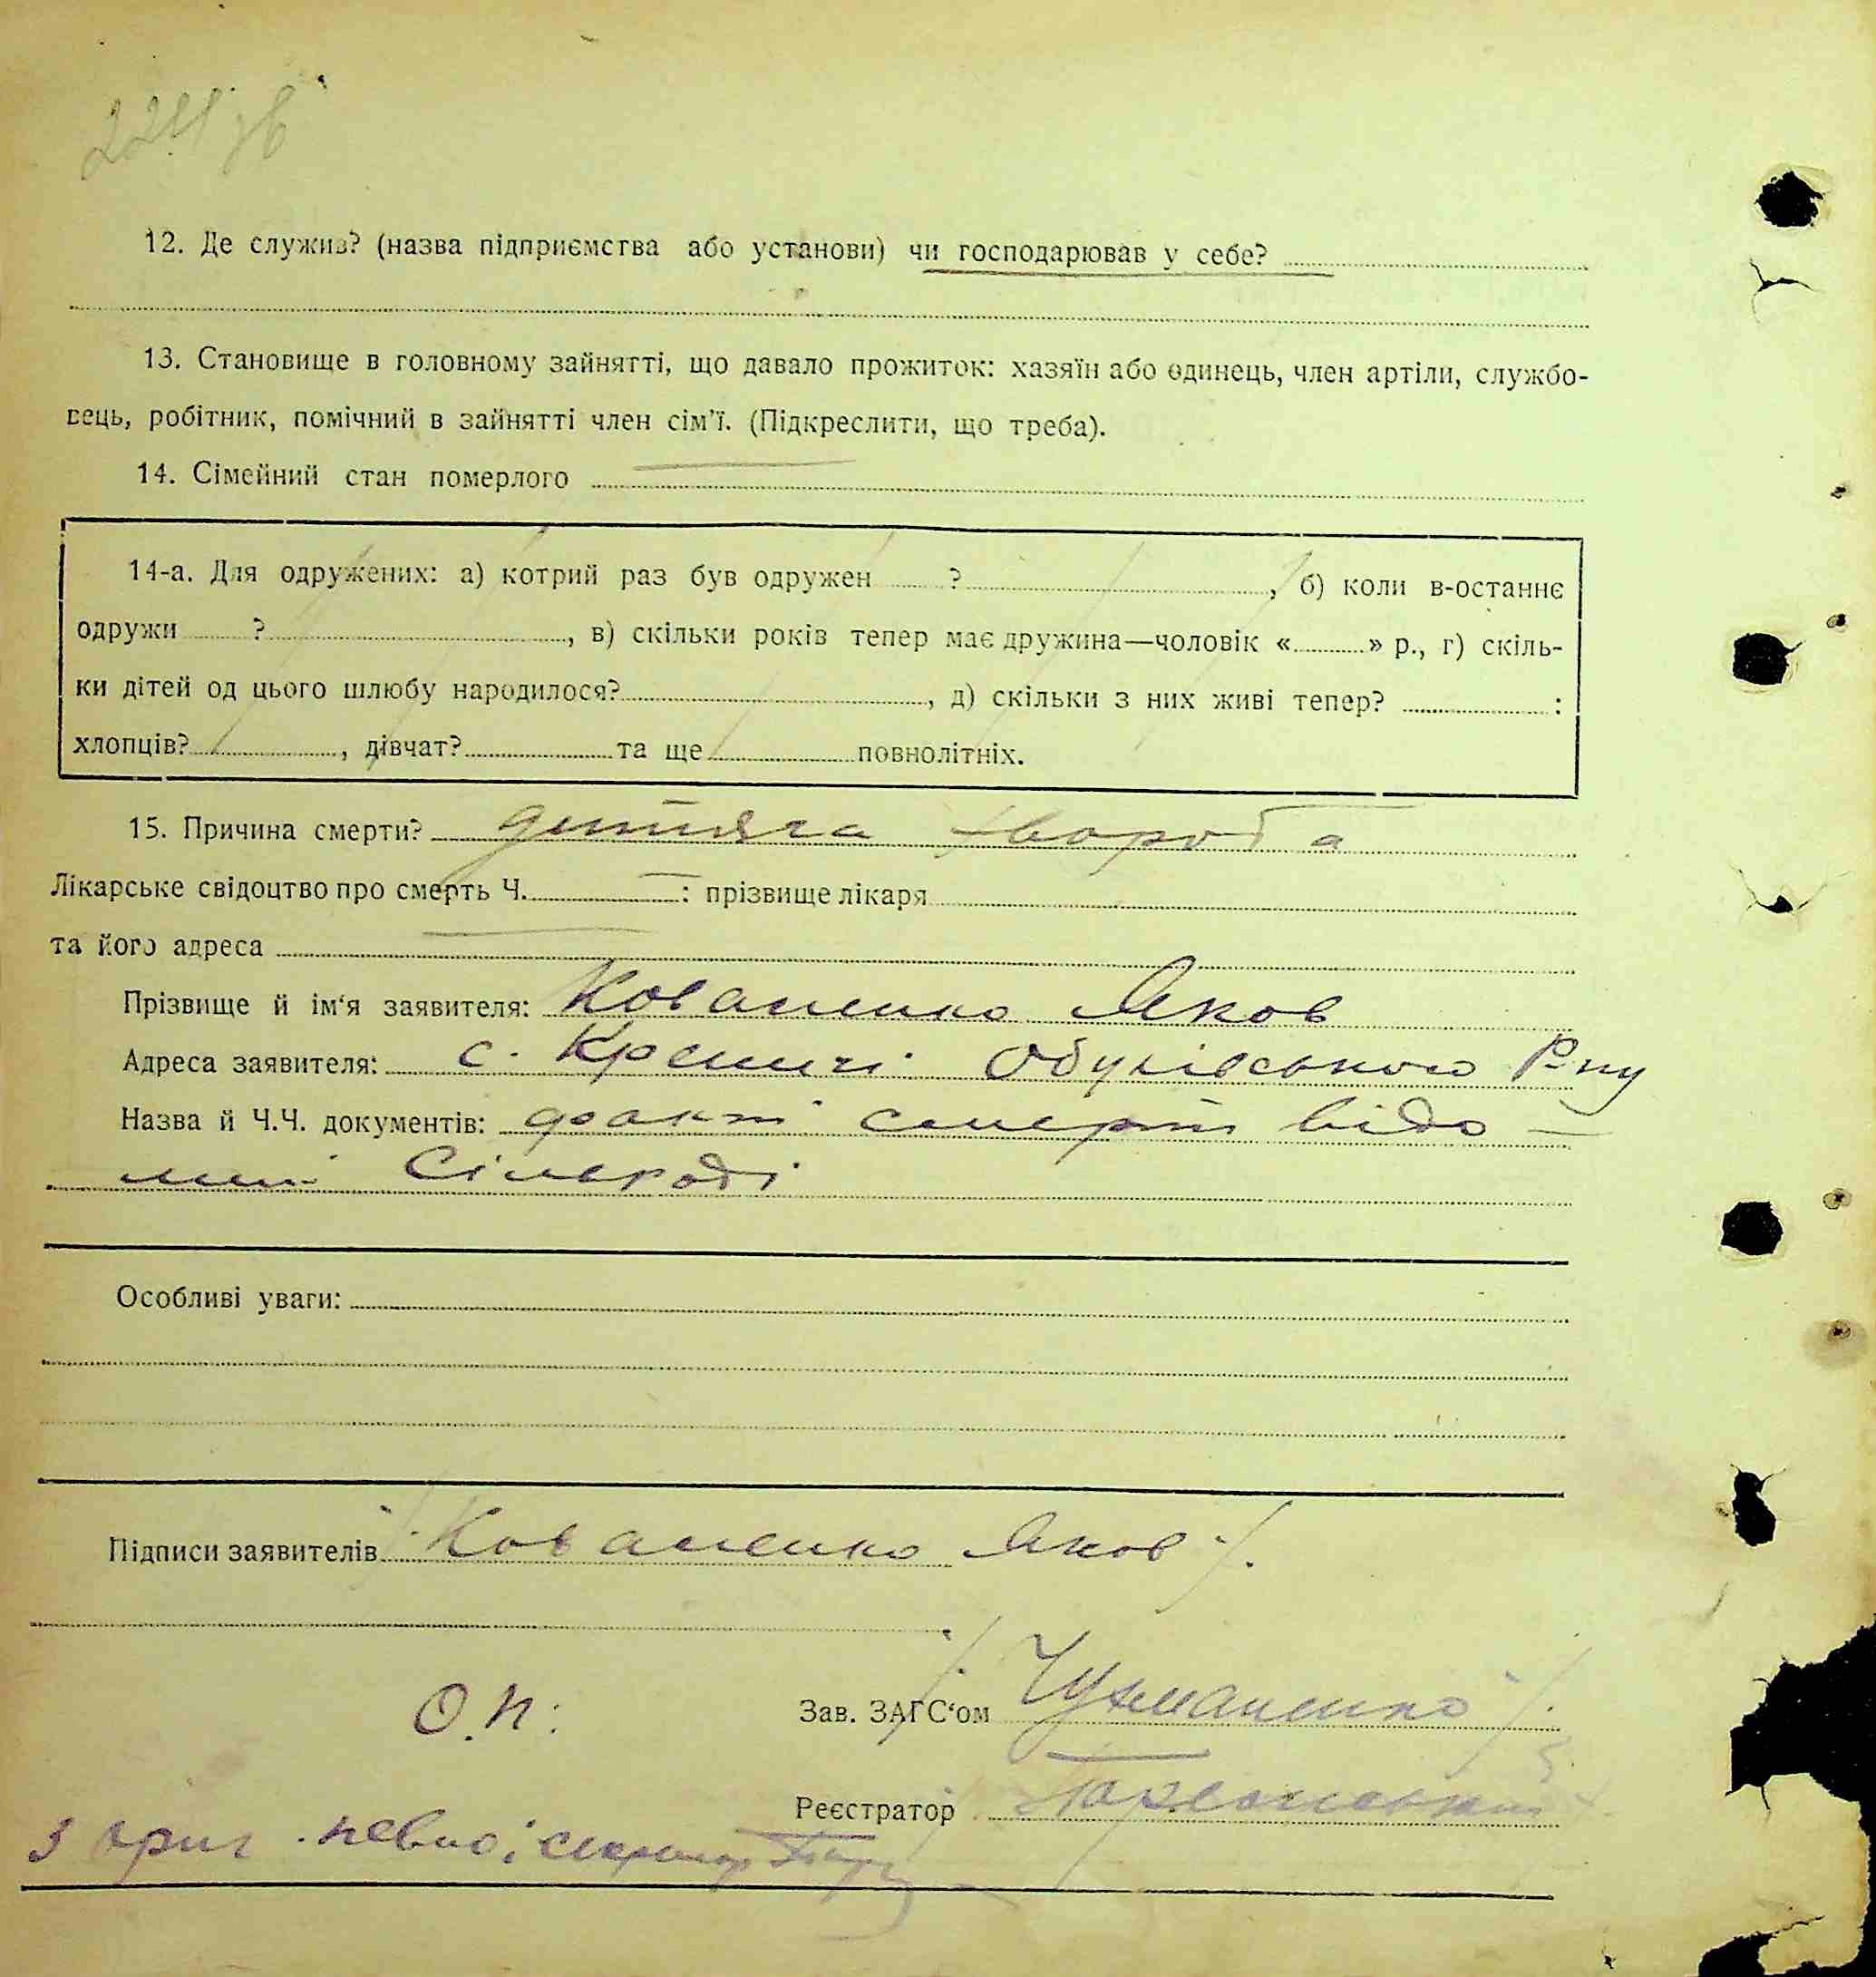 224 зв
12. Де служив? (назва підприємства або установи) чи господарював у себе?
13. Становище в головному зайнятті, що давало прожиток: хазяїн або одинець, член артіли, службо-
вець, робітник, помічний в зайнятті член сім'ї. (Підкреслити, що треба).
14. Сімейний стан померлого
14-а. Для одружених: а) котрий раз був одружен ? , б) коли в-останнє
одружи ? , в) скільки років тепер має дружина—чоловік « » р., г) скіль-
ки дітей од цього шлюбу народилося? , д) скільки з них живі тепер? :
хлопців? , дівчат? та ще повнолітніх.
15. Причина смерти? дитяча хвороба
Лікарське свідоцтво про смерть Ч. : прізвище лікаря
та його адреса
Прізвище й ім'я заявителя: Коваленко Яков
Адреса заявителя: с. Креничі Обухівського Р-ну
Назва й Ч.Ч. документів: факт смерти відо-
мий Сільраді
Особливі уваги:
Підписи заявителів /Коваленко Яков/.
О.П:
Зав. ЗАГС'ом /
Реєстратор
З ориг. певно: секретар